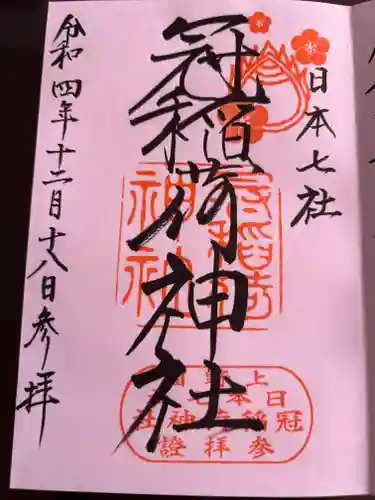 日本七社
冠稲荷神社
令和四年十二月十八日参拝
冠稲荷神社
上野國
日本七社
冠稲荷神社
参拝證